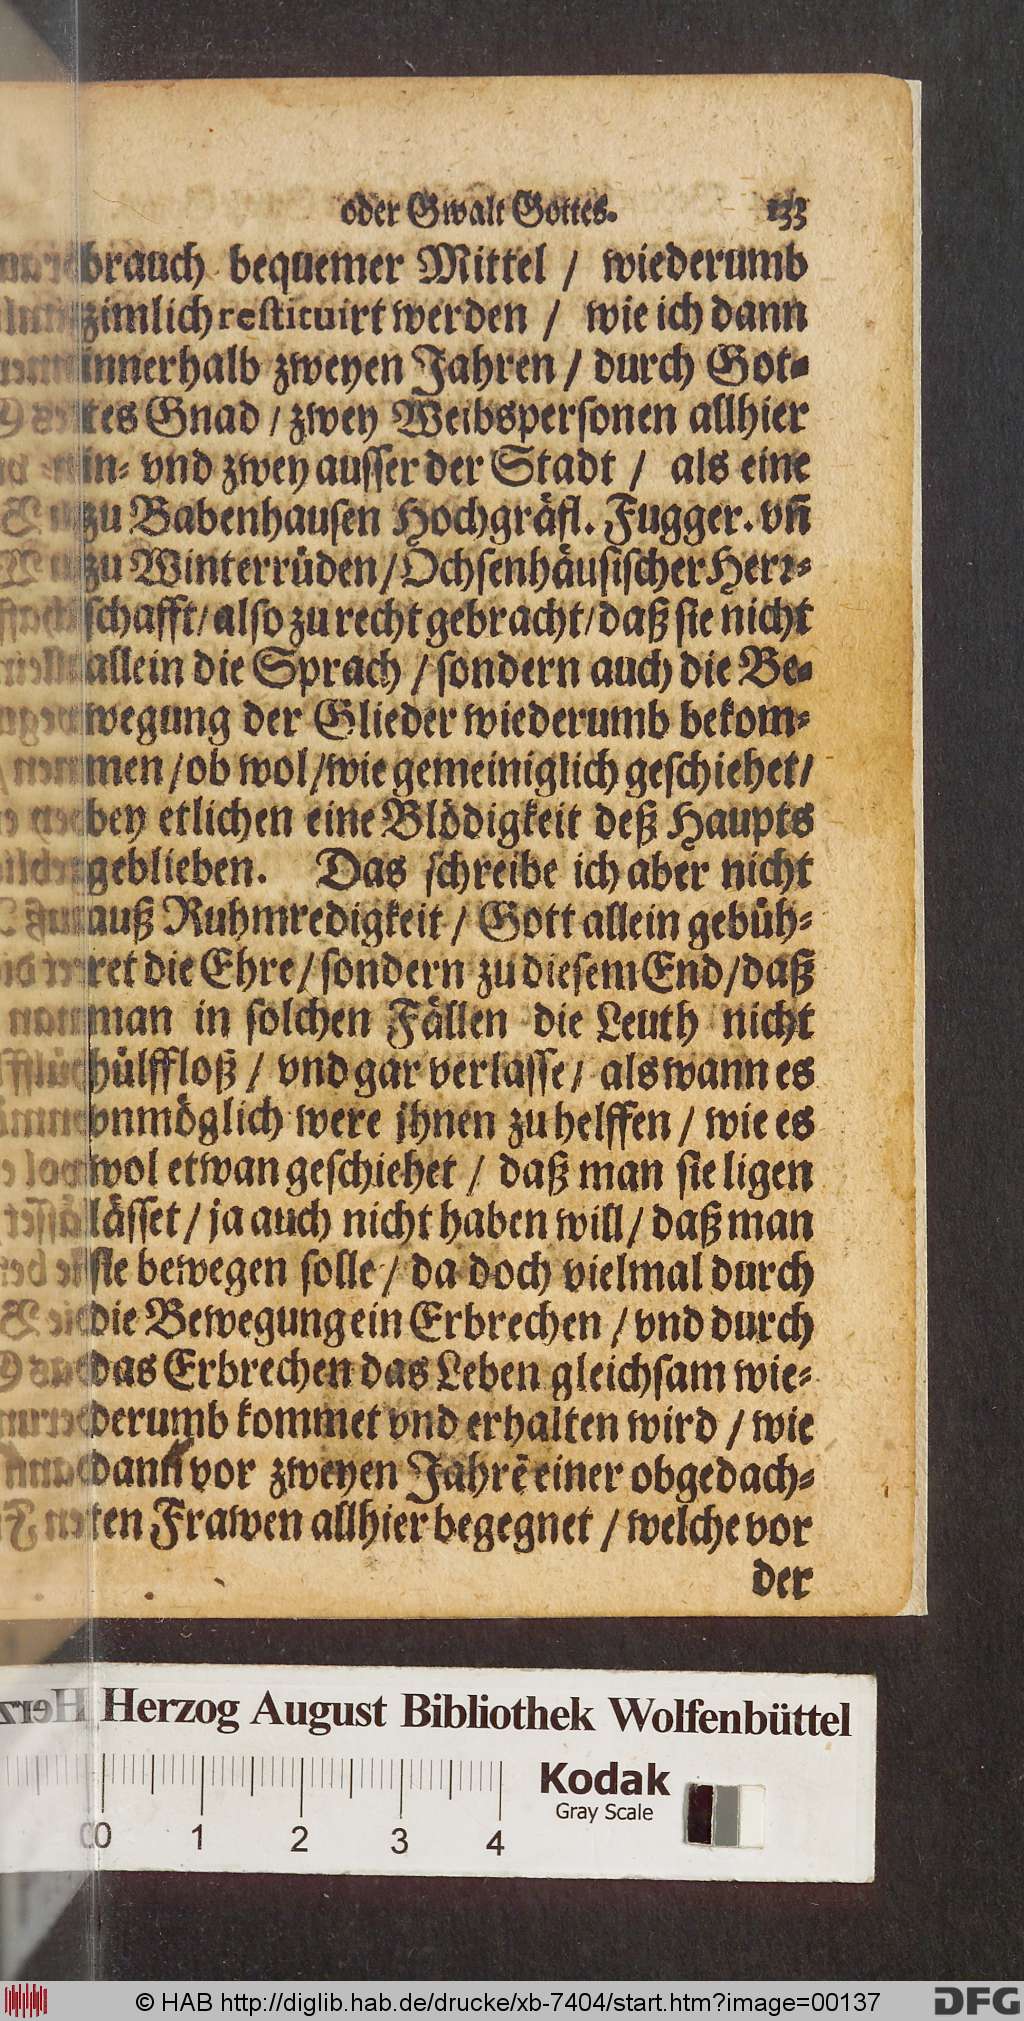 oder Gwalt Gottes. 133
brauch bequemer Mittel / wiederumb
zimlich restituirt werden / wie ich dann
innerhalb zweyen Jahren / durch Got-
tes Gnad / zwey Weibspersonen allhier
in- vnd zwey ausser der Stadt / als eine
zu Babenhausen Hochgräfl. Fugger. vñ
zu Winterrüden / Ochsenhäusischer Herr-
schafft / also zu recht gebracht / daß sie nicht
allein die Sprach / sondern auch die Be-
wegung der Glieder wiederumb bekom-
men / ob wol / wie gemeiniglich geschiehet /
bey etlichen eine Blödigkeit deß Haupts
geblieben. Das schreibe ich aber nicht
auß Ruhmredigkeit / Gott allein gebüh-
ret die Ehre / sondern zu diesem End / daß
man in solchen Fällen die Leuth nicht
hülffloß / vnd gar verlasse / als wann es
vnmöglich were jhnen zu helffen / wie es
wol etwan geschiehet / daß man sie ligen
lässet / ja auch nicht haben will / daß man
sie bewegen solle / da doch vielmal durch
die Bewegung ein Erbrechen / vnd durch
das Erbrechen das Leben gleichsam wie-
derumb kommet vnd erhalten wird / wie
dann vor zweyen Jahrē einer obgedach-
ten Frawen allhier begegnet / welche vor
der
Herzog August Bibliothek Wolfenbüttel
Kodak
Gray Scale
0 1 2 3 4
© HAB http://diglib.hab.de/drucke/xb-7404/start.htm?image=00137
DFG